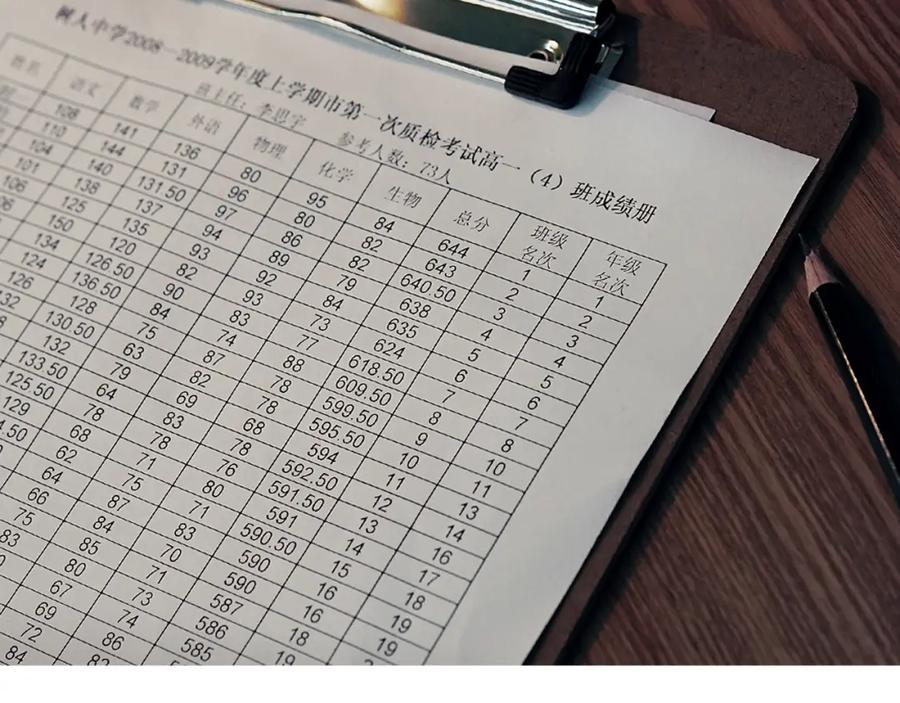 树人中学2008—2009学年度上学期市第一次质检考试高一（4）班成绩册
班主任：李思宇 参考人数：73人
语文 数学 外语 物理 化学 生物 总分 班级名次 年级名次
108 141 136 80 95 84 644 1 1
110 144 131 96 80 82 643 2 2
104 140 131.50 97 86 82 640.50 3 3
101 138 137 94 89 79 638 4 4
106 125 135 93 92 84 635 5 5
06 150 120 82 93 73 624 6 6
134 126.50 90 83 77 618.50 7 7
124 136.50 84 74 88 609.50 8 8
126 128 75 87 78 599.50 9 10
32 130.50 63 82 78 595.50 10 11
132 79 69 68 594 11 13
133.50 64 83 78 592.50 12 14
125.50 78 78 76 591.50 13 16
129 68 71 80 591 14 17
.50 62 75 71 590.50 15 18
64 87 83 590 16 19
66 84 70 590 16 19
75 85 71 587 18
83 80 73 586 19
67 74 585
69 86
72
84